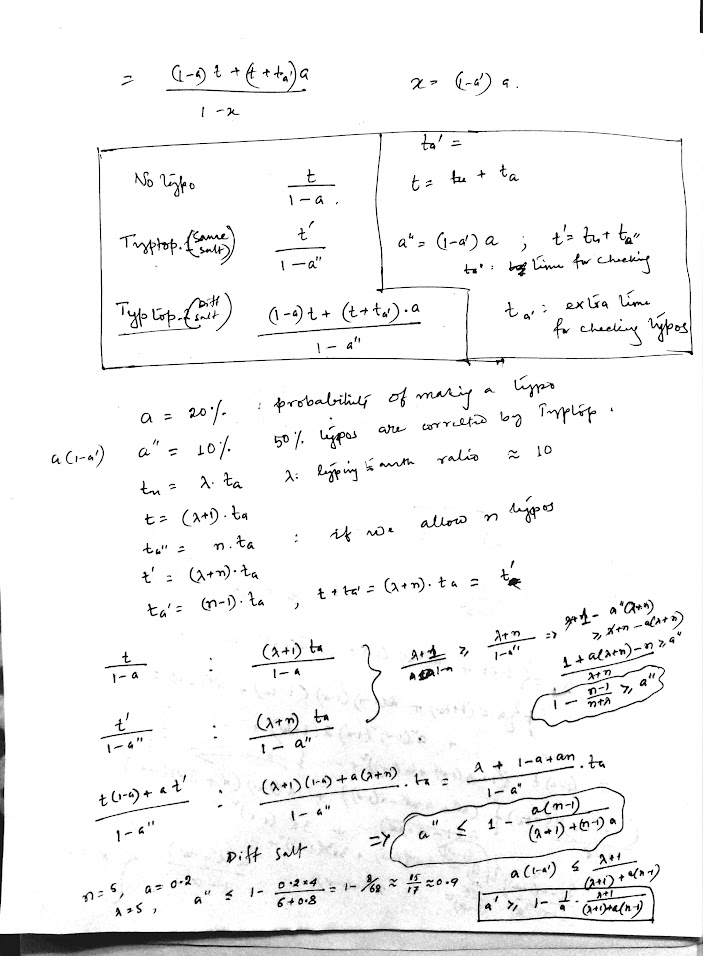 = ((1-a) t + (t + ta')a) / (1-x)    x = (1-a') a.
ta' =
No typo    t / (1-a).    t = tu + ta
Typtop. {same salt}    t' / (1-a")    a" = (1-a') a ; t' = tu + ta"
time for checking
Typtop. {Diff salt}    ((1-a)t + (t+ta').a) / (1-a")    ta' : extra time
for checking typos
a = 20% : probability of making a typo
a(1-a')    a" = 10%    50% typos are corrected by Typtop.
tu = λ. ta    λ: typing to auth ratio ≈ 10
t = (λ+1). ta
ta" = n. ta : if we allow n typos
t' = (λ+n). ta
ta' = (n-1). ta , t + ta' = (λ+n). ta = t'
t / (1-a) : (λ+1) ta / (1-a)    ≥ (λ+n) / (1-a") =>
≥ λ+n - a(λ+n)
(1 + a(λ+n) - n) / (λ+n) ≥ a"
1 - (n-1)/(n+λ) ≥ a"
t' / (1-a") : (λ+n) ta / (1-a")
(t(1-a) + a t') / (1-a") : ((λ+1)(1-a) + a(λ+n)) / (1-a") . ta = (λ + 1-a+an) / (1-a") . ta
Diff salt => a" ≤ 1 - a(n-1) / ((λ+1) + (n-1)a)
n = 5, a = 0.2
λ = 5, a" ≤ 1 - (0.2×4) / (6+0.8) = 1 - 8/68 ≈ 15/17 ≈ 0.9
a(1-a') ≤ (λ+1) / ((λ+1) + a(n-1))
a' ≥ 1 - 1/a . (λ+1) / ((λ+1)+a(n-1))